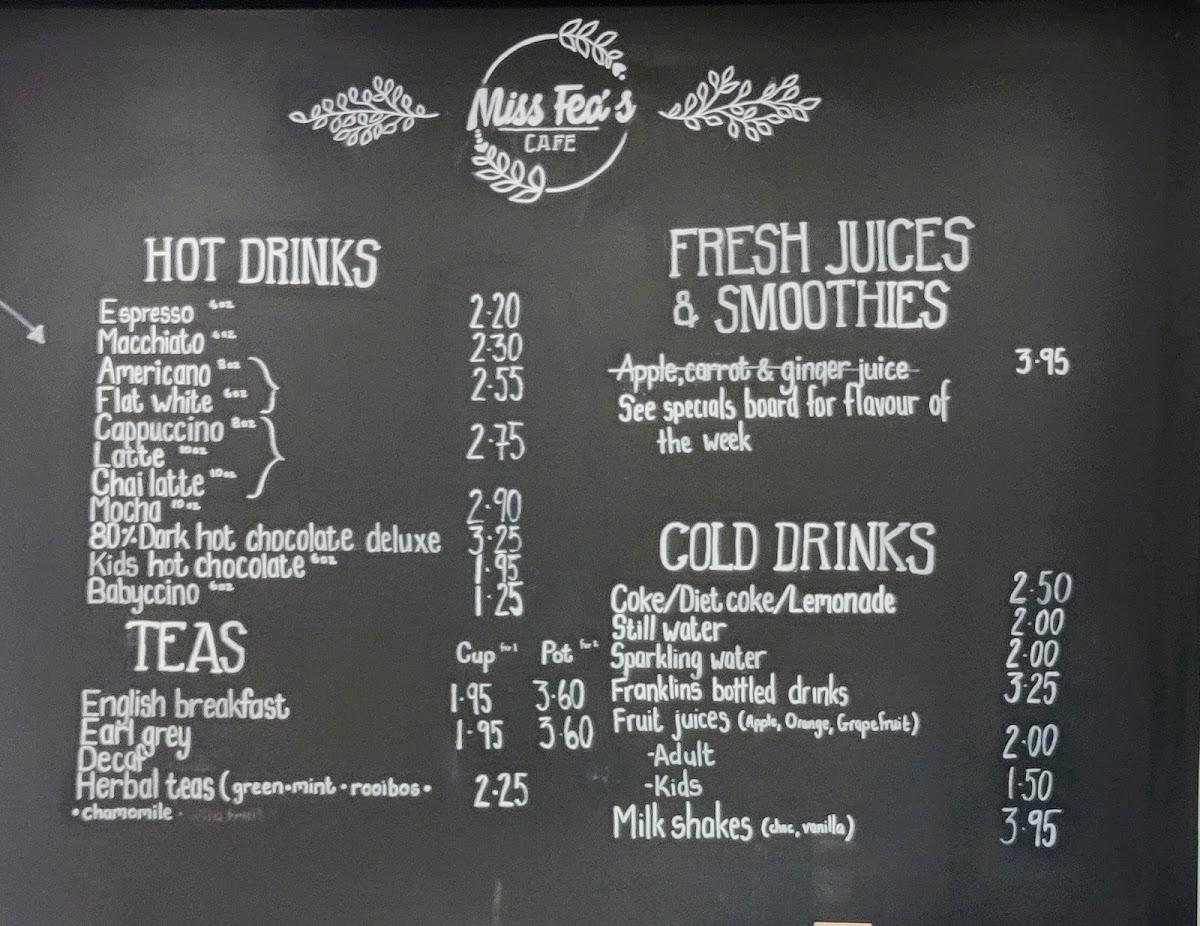 Miss Fea's
CAFE
HOT DRINKS
Espresso 2.20
Macchiato 2.30
Americano 8oz
Flat white 6oz 2.55
Cappuccino 8oz
Latte 10oz 2.75
Chai latte 10oz
Mocha 10oz 2.90
80% Dark hot chocolate deluxe 3.25
Kids hot chocolate 6oz 1.95
Babyccino 1.25
TEAS Cup for 1 Pot for 2
English breakfast 1.95 3.60
Earl grey 1.95 3.60
Decaf
Herbal teas (green•mint•rooibos• 2.25
•chamomile•
FRESH JUICES
& SMOOTHIES
Apple, carrot & ginger juice 3.95
See specials board for flavour of
the week
COLD DRINKS
Coke/Diet coke/Lemonade 2.50
Still water 2.00
Sparkling water 2.00
Franklins bottled drinks 3.25
Fruit juices (Apple, Orange, Grapefruit)
-Adult 2.00
-Kids 1.50
Milk shakes (choc, vanilla) 3.95